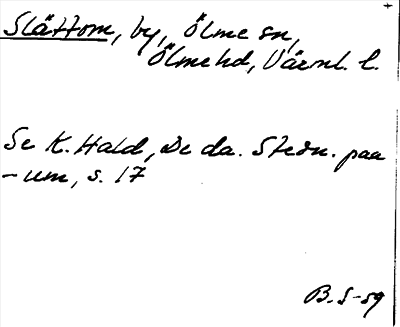 Slättom, by, Ölme sn,
Ölme hd, Värml. l.
Se K. Hald, De da. Stedn. paa
-um, s. 17
B. S-59